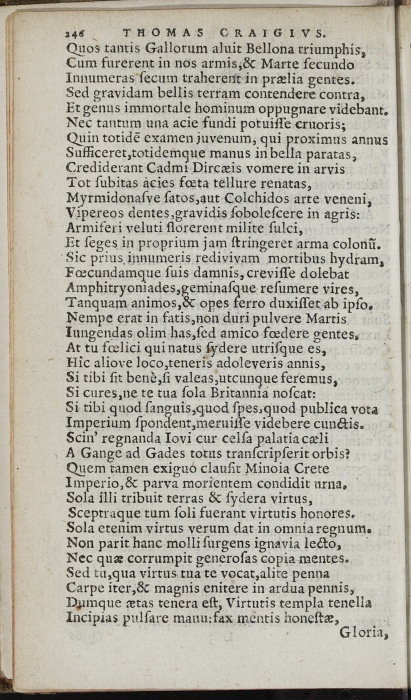 246 THOMAS CRAIGIVS.
Quos tantis Gallorum aluit Bellona triumphis,
Cum furerent in nos armis,& Marte ſecundo
Innumeras ſecum traherent in prælia gentes.
Sed gravidam bellis terram contendere contra,
Et genus immortale hominum oppugnare videbant.
Nec tantum una acie fundi potuiſſe cruoris;
Quin totidē examen juvenum, qui proximus annus
Sufficeret,totidemque manus in bella paratas,
Crediderant Cadmi Dircæis vomere in arvis
Tot ſubitas acies fœta tellure renatas,
Myrmidonaſve ſatos,aut Colchidos arte veneni,
Vipereos dentes,gravidis ſoboleſcere in agris:
Armiferi veluti florerent milite ſulci,
Et ſeges in proprium jam ſtringeret arma colonū.
Sic prius innumeris redivivam mortibus hydram,
Fœcundamque ſuis damnis, creviſſe dolebat
Amphitryoniades,geminaſque reſumere vires,
Tanquam animos,& opes ferro duxiſſet ab ipſo.
Nempe erat in fatis,non duri pulvere Martis
Iungendas olim has,ſed amico fœdere gentes.
At tu fœlici qui natus ſydere utriſque es,
Hîc aliove loco,teneris adoleveris annis,
Si tibi ſit benè,ſi valeas,utcunque feremus,
Si cures,ne te tua ſola Britannia noſcat:
Si tibi quod ſanguis,quod ſpes,quod publica vota
Imperium ſpondent,meruiſſe videbere cunctis.
Scin' regnanda Iovi cur celſa palatia cæli
A Gange ad Gades totus tranſcripſerit orbis?
Quem tamen exiguo clauſit Minoia Crete
Imperio,& parva morientem condidit urna.
Sola illi tribuit terras & ſydera virtus,
Sceptraque tum ſoli fuerant virtutis honores.
Sola etenim virtus verum dat in omnia regnum.
Non parit hanc molli ſurgens ignavia lecto,
Nec quæ corrumpit generoſas copia mentes.
Sed tu,qua virtus tua te vocat,alite penna
Carpe iter,& magnis enitere in ardua pennis,
Dumque ætas tenera eſt, Virtutis templa tenella
Incipias pulſare manu:fax mentis honeſtæ,
Gloria,